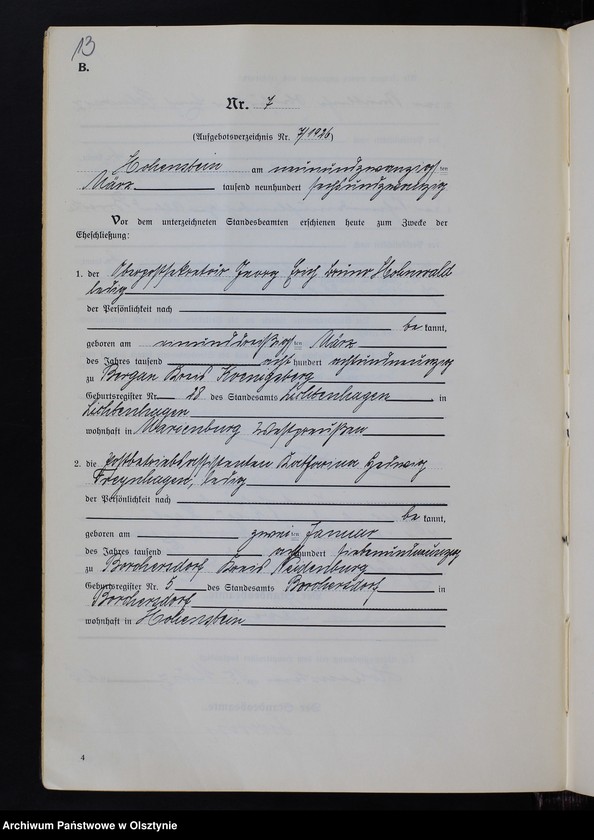 13
B.
Nr. 7
(Aufgebotsverzeichnis Nr. 7/1926)
Hohenstein am neunundzwanzigsten
März tausend neunhundert sechsundzwanzig
Vor dem unterzeichneten Standesbeamten erschienen heute zum Zwecke der
Eheschließung:
1. der Oberpostsekretär Georg Erich Bruno Hohnwald
ledig
der Persönlichkeit nach
be kannt,
geboren am einunddreißigsten März
des Jahres tausend acht hundert achtundneunzig
zu Bergau Kreis Koenigsberg
Geburtsregister Nr. 28 des Standesamts Lichtenhagen in
Lichtenhagen
wohnhaft in Marienburg Westpreußen
2. die Postbetriebsassistentin Katharina Hedwig
Freynhagen, ledig
der Persönlichkeit nach
be kannt,
geboren am zweiten Januar
des Jahres tausend acht hundert siebenundneunzig
zu Borchersdorf Kreis Neidenburg
Geburtsregister Nr. 5 des Standesamts Borchersdorf in
Borchersdorf
wohnhaft in Hohenstein
4
Archiwum Państwowe w Olsztynie